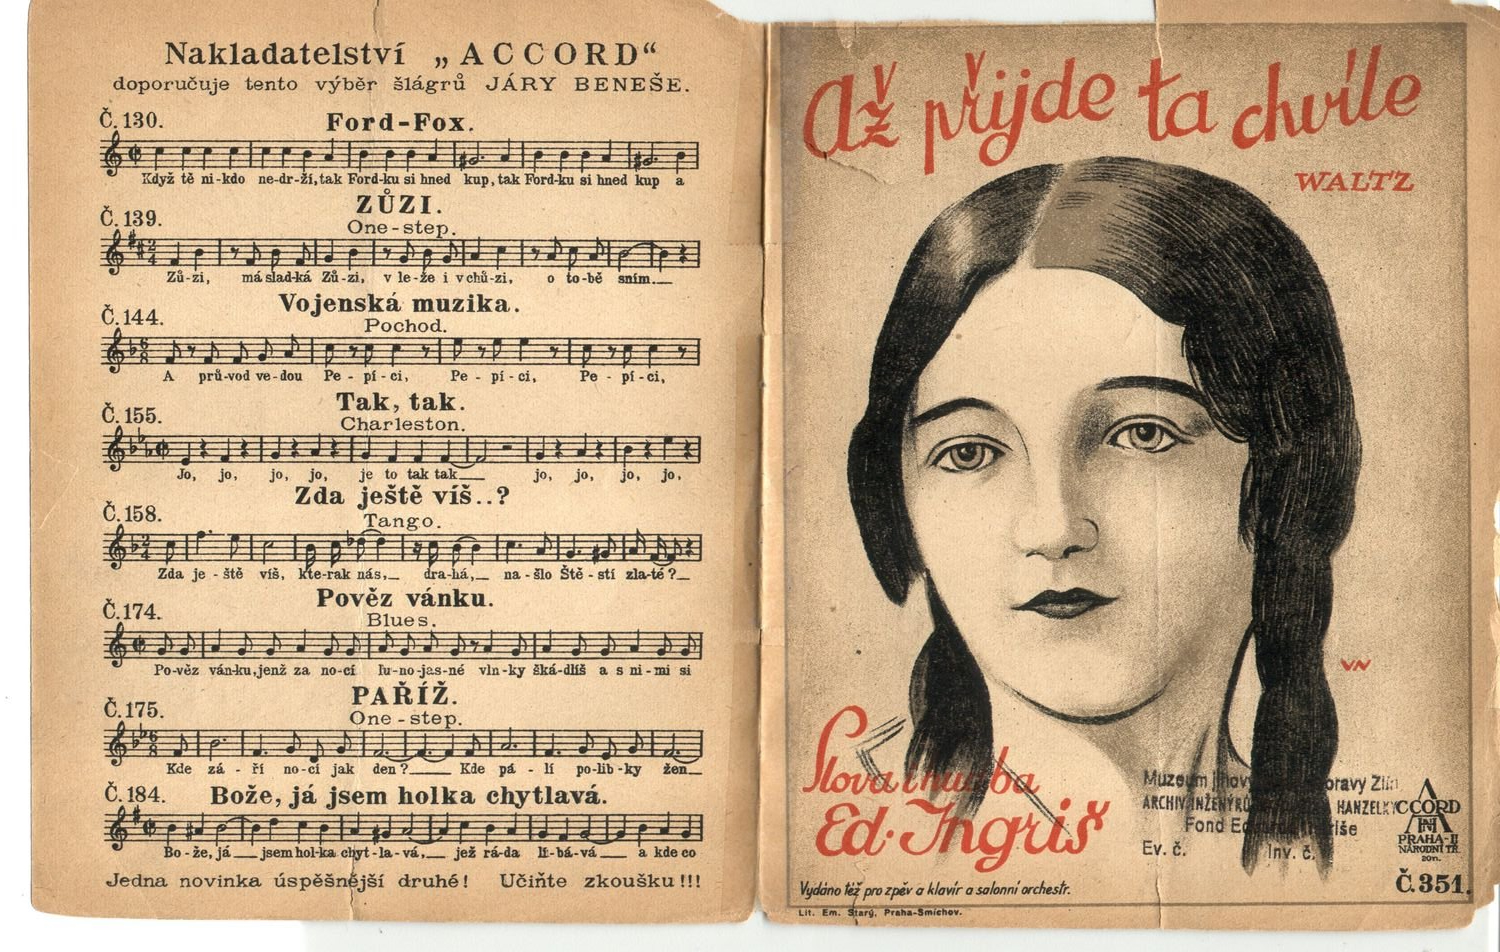 Nakladatelství „ACCORD“
doporučuje tento výběr šlágrů JÁRY BENEŠE.
Č.130.
Ford-Fox.
Když tě ni-kdo ne-dr-ží, tak Ford-ku si hned kup, tak Ford-ku si hned kup a
Č.139.
ZŮZI.
One-step.
Zů-zi, má slad-ká Zů-zi, v le-že i v chů-zi, o to-bě sním.
Č.144.
Vojenská muzika.
Pochod.
A prů-vod ve-dou Pe-pí-ci, Pe-pí-ci, Pe-pí-ci,
Č.155.
Tak, tak.
Charleston.
Jo, jo, jo, jo, je to tak tak jo, jo, jo, jo,
Č.158.
Zda ještě víš..?
Tango.
Zda je-ště víš, kte-rak nás, dra-há, na-šlo Ště-stí zla-té?
Č.174.
Pověz vánku.
Blues.
Po-věz ván-ku, jenž za no-cí lu-no-jas-né vln-ky šká-dlíš a s ni-mi si
Č.175.
PAŘÍŽ.
One-step.
Kde zá-ří no-cí jak den? Kde pá-lí po-lib-ky žen
Č.184.
Bože, já jsem holka chytlavá.
Bo-že, já jsem hol-ka chyt-la-vá, jež rá-da lí-bá-vá a kde co
Jedna novinka úspěšnější druhé! Učiňte zkoušku!!!
Až přijde ta chvíle
WALTZ
VN
Slova i hudba
Ed. Ingriš
Muzeum Zlín
ARCHIV INŽENÝRŮ HANZELKY
Fond
Ev. č. Inv. č.
ACCORD
PRAHA-II
NÁRODNÍ TŘ.
Č.351.
Vydáno též pro zpěv a klavír a salonní orchestr.
Lit. Em. Starý, Praha-Smíchov.